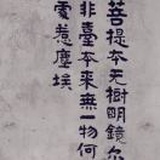 菩提本无樹明鏡亦
非臺本来無一物何
處惹塵埃